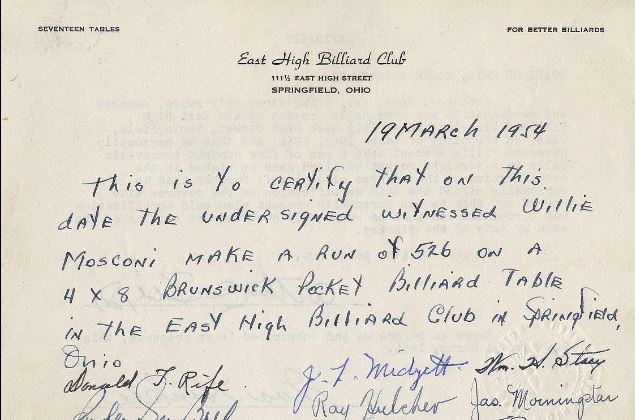 SEVENTEEN TABLES
FOR BETTER BILLIARDS
East High Billiard Club
111½ EAST HIGH STREET
SPRINGFIELD, OHIO
19 MARCH 1954
This is to certify that on this
date the undersigned witnessed Willie
Mosconi make a run of 526 on a
4 x 8 Brunswick Pocket Billiard Table
in the East High Billiard Club in Springfield,
Ohio
Donald T. Rife J. L. Midgett Wm. H. Stacy
Ray Hulcher Jas. Morningstar